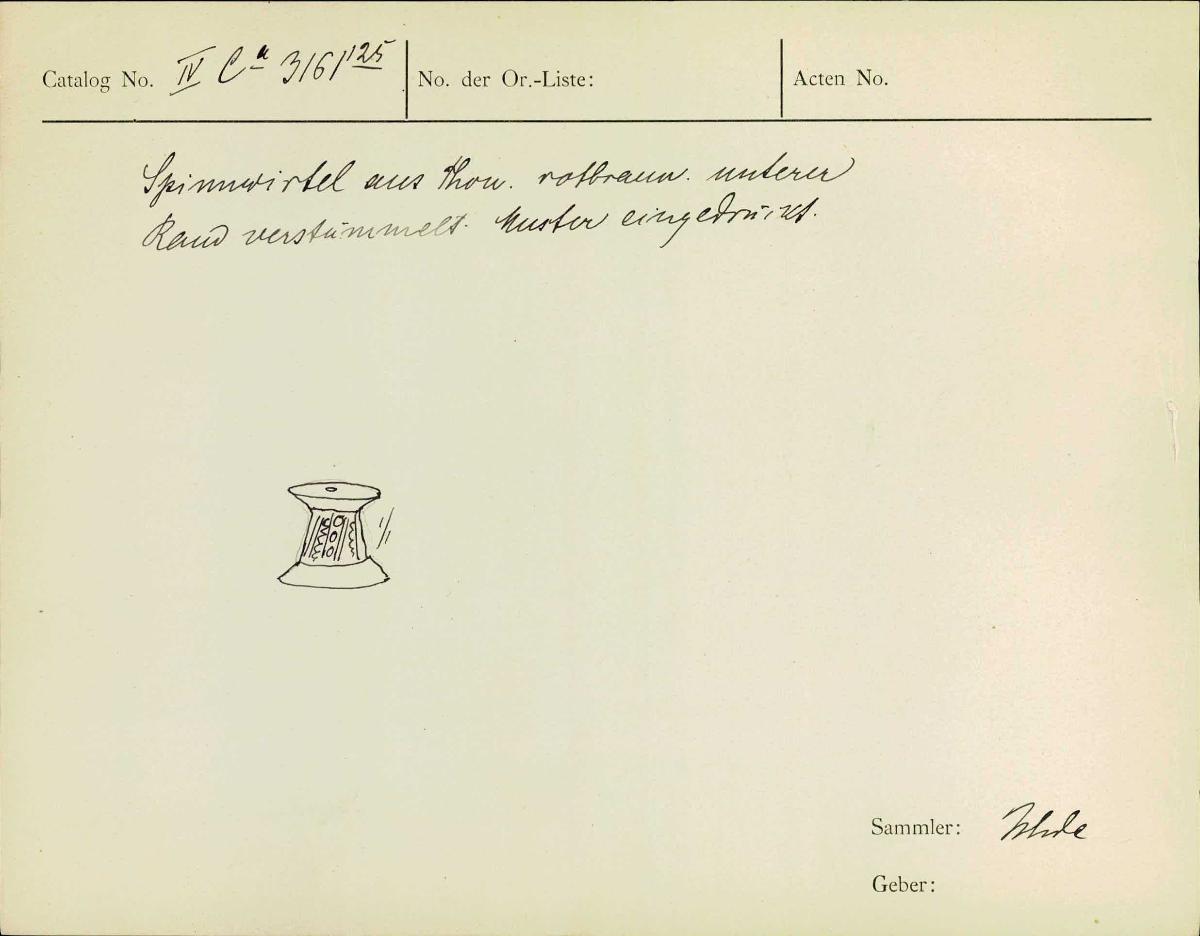 Catalog No. IV Ca 3161 125
No. der Or.-Liste:
Acten No.
Spinnwirtel aus Thon. rotbraun. unterer
Rand verstümmelt. Muster eingedrückt.
1/1
Sammler:
Geber: